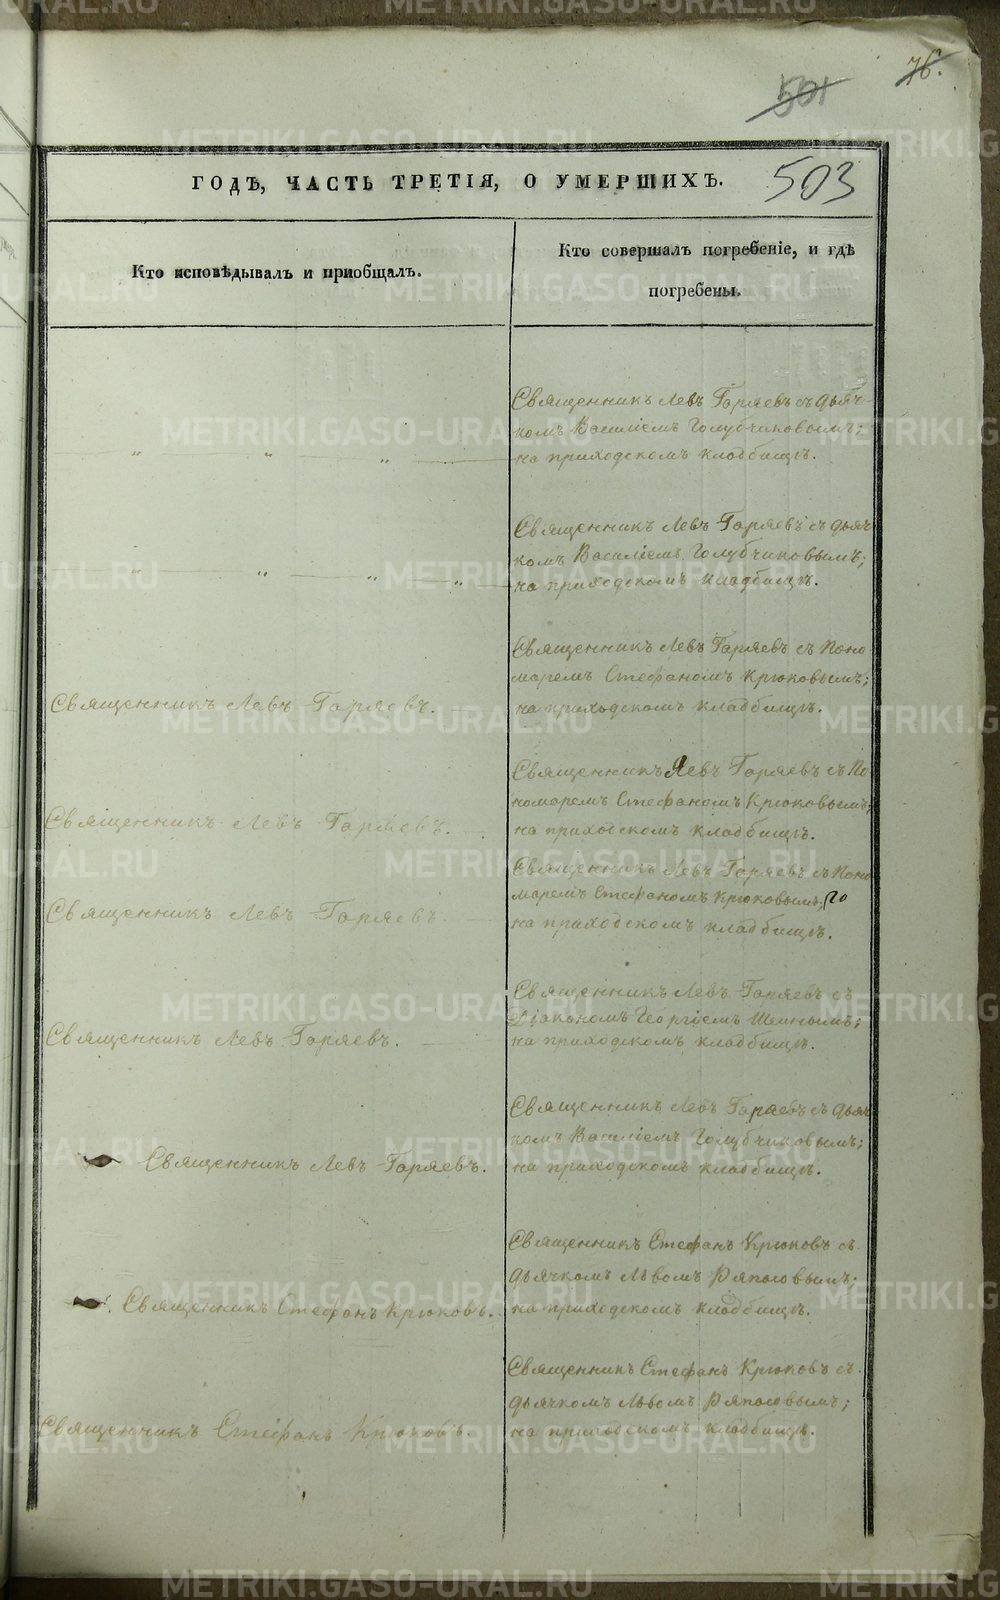 76.
501
503
ГОДѢ, ЧАСТЬ ТРЕТІЯ, О УМЕРШИХЪ.
Кто исповѣдывалъ и приобщалъ.
Кто совершалъ погребеніе, и гдѣ
погребены.
Священникъ Левъ Гаряевъ съ дьяч-
комъ Василіемъ Голубчиковымъ;
на приходскомъ кладбищѣ.
Священникъ Левъ Гаряевъ съ дьяч
комъ Василіемъ Голубчиковымъ;
на приходскомъ кладбищѣ.
Священникъ Левъ Гаряевъ.
Священникъ Левъ Гаряевъ съ Поно
маремъ Стефаномъ Крюковымъ;
на приходскомъ кладбищѣ.
Священникъ Левъ Гаряевъ.
Священникъ Левъ Гаряевъ съ По
номаремъ Стефаномъ Крюковымъ;
на приходскомъ кладбищѣ.
Священникъ Левъ Гаряевъ.
Священникъ Левъ Гаряевъ съ Поно
маремъ Стефаномъ Крюковымъ;
на приходскомъ кладбищѣ.
Священникъ Левъ Гаряевъ.
Священникъ Левъ Гаряевъ съ
Діакономъ Георгіемъ
на приходскомъ кладбищѣ.
Священникъ Левъ Гаряевъ.
Священникъ Левъ Гаряевъ съ дьяч
комъ Василіемъ Голубчиковымъ;
на приходскомъ кладбищѣ.
Священникъ Стефанъ Крюковъ.
Священникъ Стефанъ Крюковъ съ
дьячкомъ Львомъ Ряпосовымъ;
на приходскомъ кладбищѣ.
Священникъ Стефанъ Крюковъ.
Священникъ Стефанъ Крюковъ съ
дьячкомъ Львомъ Ряпосовымъ;
на приходскомъ кладбищѣ.
METRIKI.GASO-URAL.RU